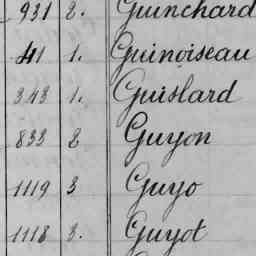 931 2. Guinchard
41 1. Guinoiseau
343 1. Guislard
833 2 Guyon
1119 3 Guyo
1118 3. Guyot